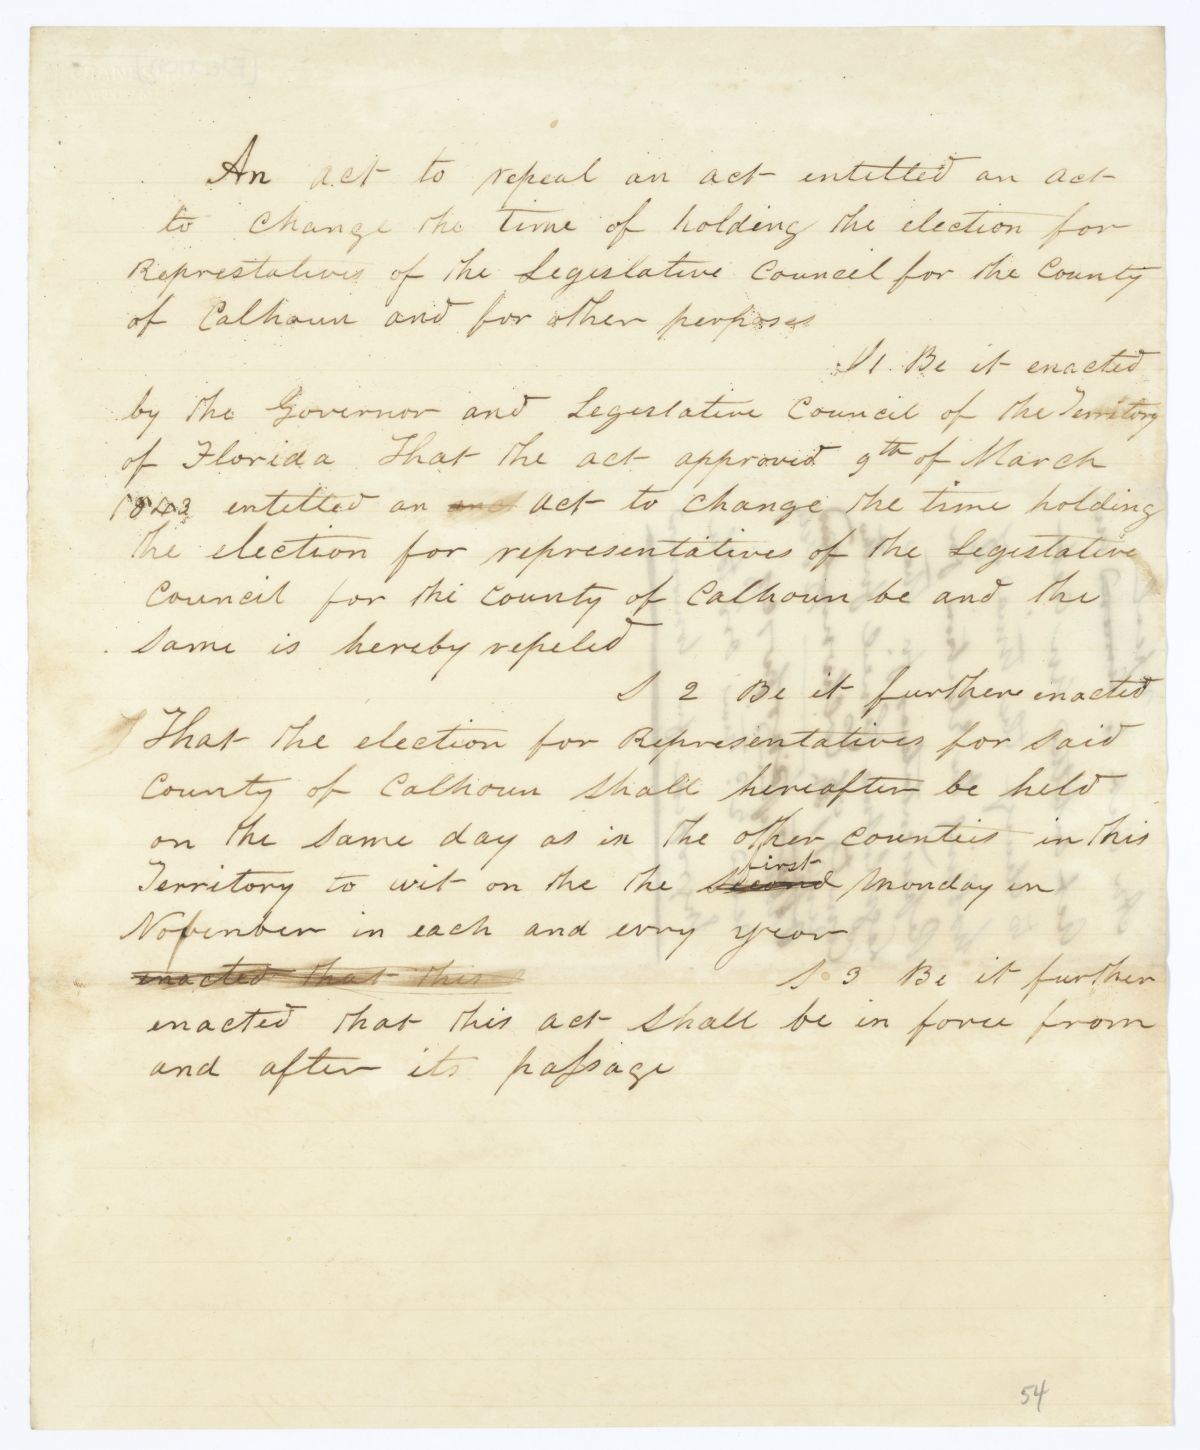 An act to repeal an act entitled an act
to change the time of holding the election for
Represtatives of the Legislative Council for the County
of Calhoun and for other perposes
S 1. Be it enacted
by the Governor and Legislative Council of the Territory
of Florida That the act approved 9th of March
1843 entitled an act to change the time holding
the election for representatives of the Legistative
Council for the County of Calhoun be and the
same is hereby repeled
S 2 Be it further enacted
That the election for Representatives for said
County of Calhoun shall hereafter be held
on the same day as in the other counties in this
first
Territory to wit on the the second Monday in
November in each and evry year
enacted that this
S. 3 Be it further
enacted that this act shall be in force from
and after its passage
54